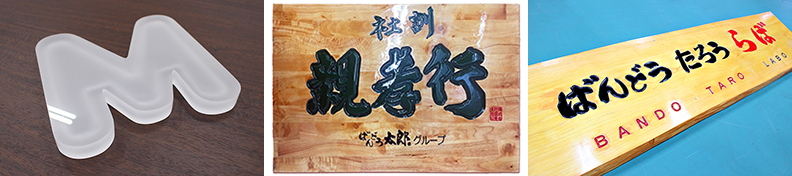 M
社訓
親孝行
ばんどう太郎グループ
ばんどう たろう らぼ
BANDO TARO LABO